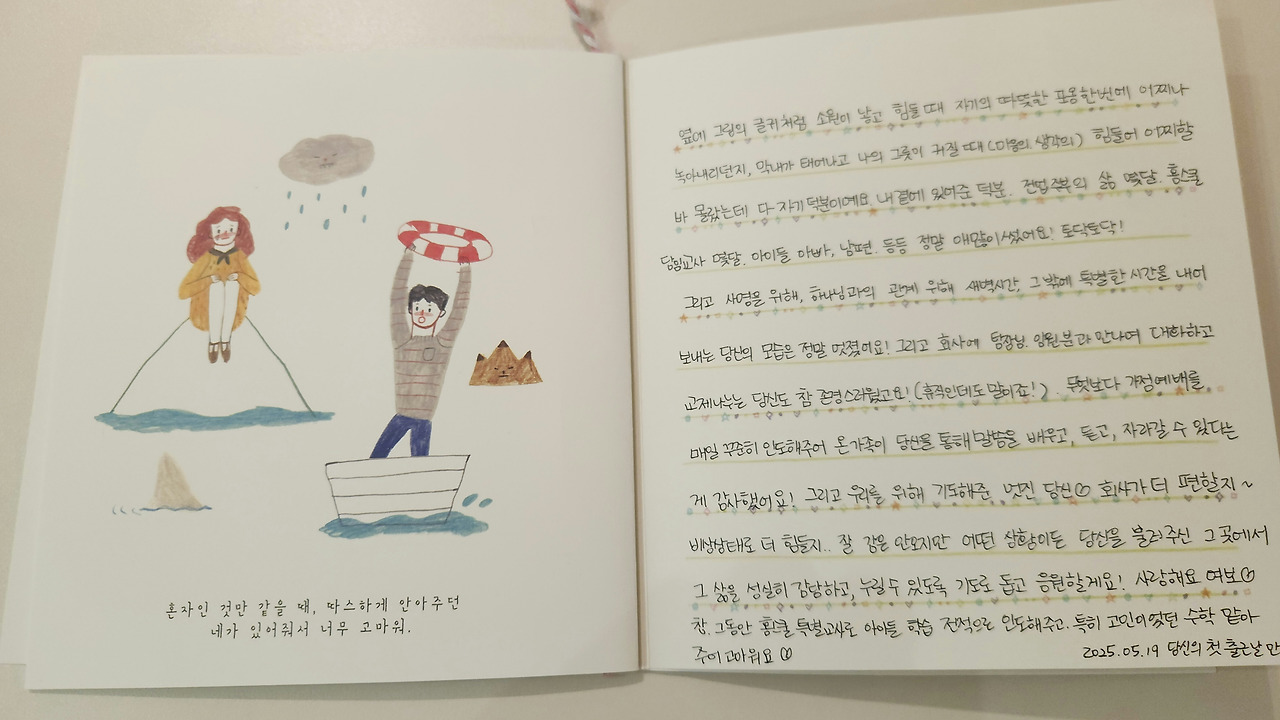 혼자인 것만 같을 때, 따스하게 안아주던
네가 있어줘서 너무 고마워.
옆에 그림의 글귀처럼 소원이 낳고 힘들때 자기의 따뜻한 포옹한번에 어찌나
녹아내리던지, 막내가 태어나고 나의 그릇이 커질때(마음의 생각의) 힘들어 어찌할
바 몰랐는데 다 자기덕분이예요. 내곁에 있어준 덕분. 전업주부의 삶 몇달. 홈스쿨
담임교사 몇달. 아이들 아빠, 남편. 등등 정말 애많이 썼어요! 토닥토닥!
그리고 사명을 위해, 하나님과의 관계 위해 새벽시간, 그밖에 특별한시간을 내어
보내는 당신의 모습은 정말 멋졌어요! 그리고 회사에 팀장님. 임원분과 만나며 대화하고
교제나누는 당신도 참 존경스러웠고요! (휴직인데도 말이죠!). 무엇보다 가정예배를
매일 꾸준히 인도해주어 온가족이 당신을 통해 말씀을 배우고, 듣고, 자라갈 수 있다는
게 감사했어요! 그리고 우리를 위해 기도해준 멋진 당신♡ 회사가 더 편할지~
비상상태로 더 힘들지.. 잘 감은 안오지만 어떤 상황이든 당신을 불러주신 그곳에서
그 삶을 성실히 감당하고, 누릴 수 있도록 기도로 돕고 응원할게요! 사랑해요 여보♡
참. 그동안 홈스쿨 특별교사로 아이들 학습 전적으로 인도해주고. 특히 고민이었던 수학 맡아
주어 고마워요♡
2025.05.19 당신의 첫 출근날 만